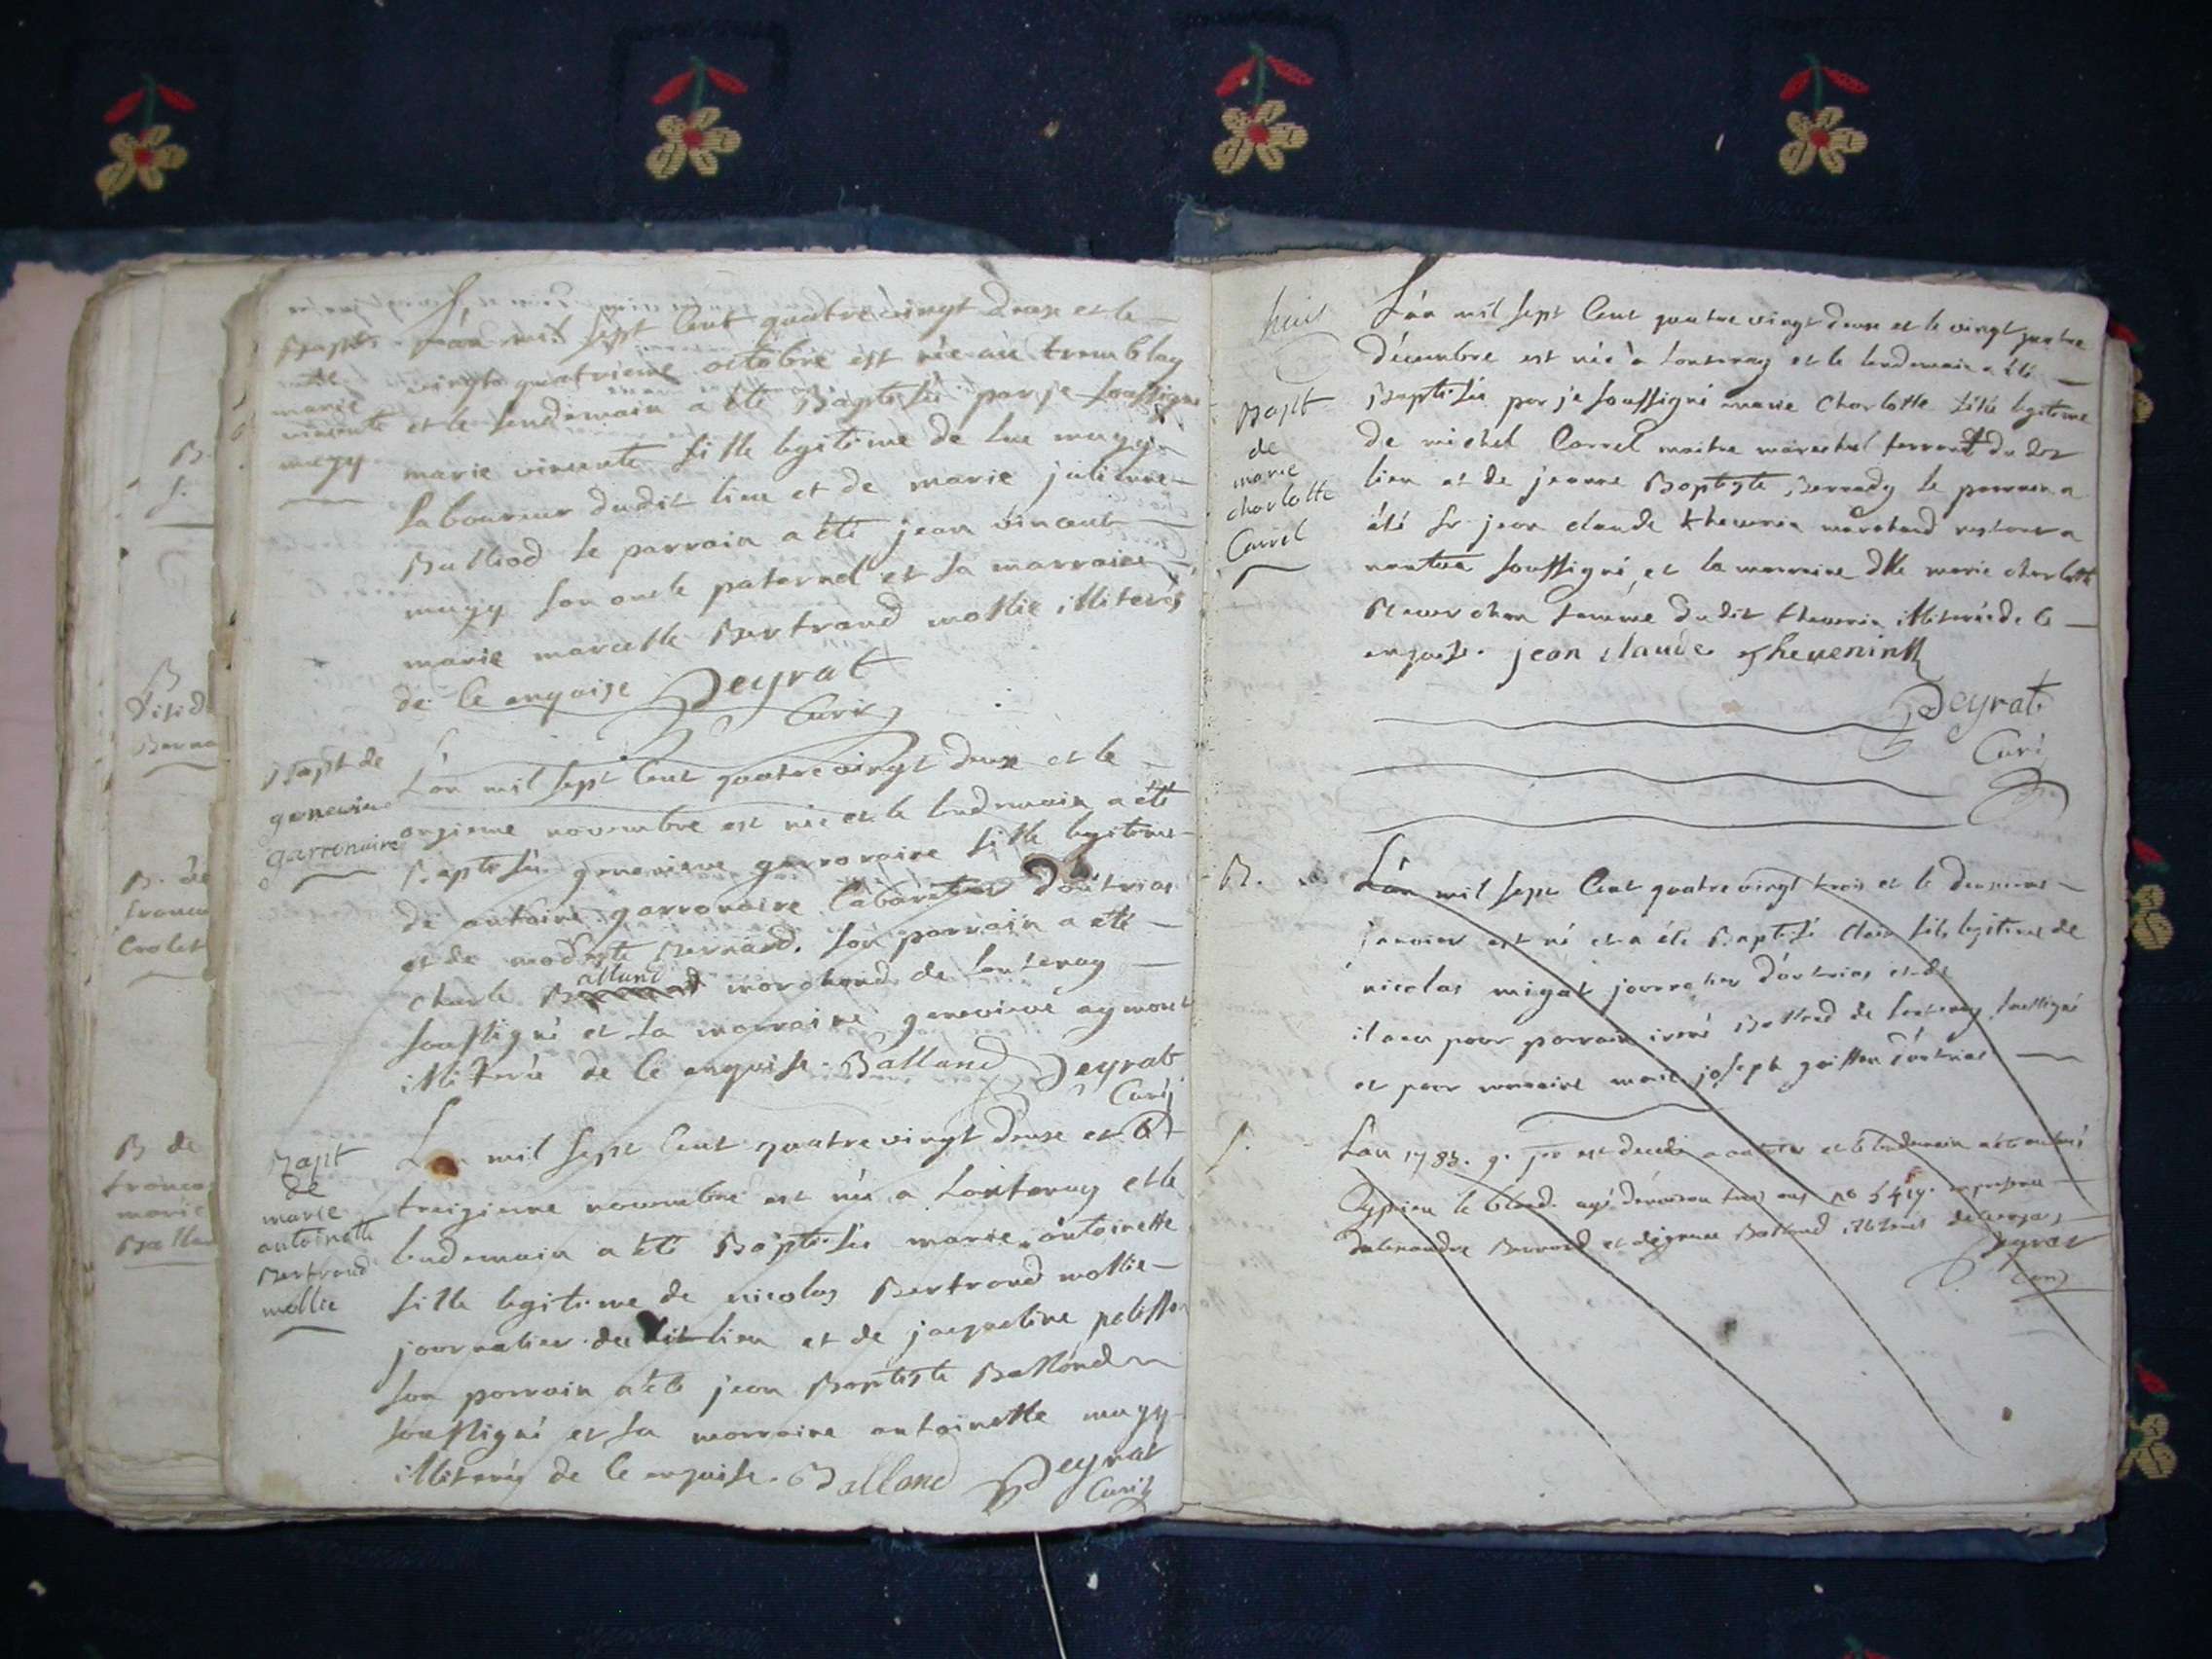 Bapt de
marie
vincente
mugy
L'an mil sept cent quatre vingt deux et le
vingt quatrieme octobre est née au tremblay
et et le lendemain a été Baptisée par je soussigné
marie vincente fille legitime de luc mugy
laboureur dudit lieu et de marie julienne
Balliod le parrain a été jean vincent
mugy son oncle paternel et sa marraine
marie marcelle Bertrand mollie illiterés
de ce enquise Peyrat
Curé
Bapt de
genevieve
garronaire
L'an mil sept cent quatre vingt deux et le
onzieme novembre est née et le lendemain a été
Baptisée genevieve garronaire fille legitime
de antoine garronaire Cabaretier d'outriaz
et de modeste Bernard. son parrain a été
alland
charle B marchand de lantenay
soussigné et la marraine genevieve aymont
illiterée de ce enquise. Balland Peyrat
Curé
Bapt
de
marie
antoinette
Bertrand
mollie
L'an mil sept cent quatre vingt deux et le
treizieme novembre est née a lantenay et le
lendemain a été Baptisée marie antoinette
fille legitime de nicolas Bertrand mollie
journalier du dit lieu et de jacqueline pelisson
son parrain a été jean Baptiste Balland
soussigné et sa marraine antoinette mugy
illiterée de ce enquise. Balland Peyrat
Curé
huit
Bapt
de
marie
charlotte
Carrel
L'an mil sept cent quatre vingt deux et le vingt quatre
décembre est née a lantenay et le lendemain a été
Baptisée par je soussigné marie Charlotte fille legitime
de michel Carrel maitre marechal ferrant du dit
lieu et de jeanne Baptiste Bernady le parrain a
été Sr jean claude thevenin marchand restant a
nantua soussigné, et la marraine dlle marie charlotte
femme dudit thevenin illiterée de ce
enquise. jean claude thevenin
Peyrat
Curé
B.
L'an mil sept cent quatre vingt trois et le deuxieme
janvier est né et a été Baptisé fils legitime de
nicolas migat journalier d'outriaz et de
il a eu pour parrain irené Balland de lantenay soussigné
et pour marraine marie joseph d'outriaz
S.
L'an 1783. 9. jer est decedé a outriaz et le lendemain a été enterré
le blond. agé d'environ ans en presence
d'alexandre Bernard et Balland illiterés de ce enquis
Peyrat
Curé
B.
S.
B
Berna
B. de
franco
Crolet
B de
franco
marie
Balla